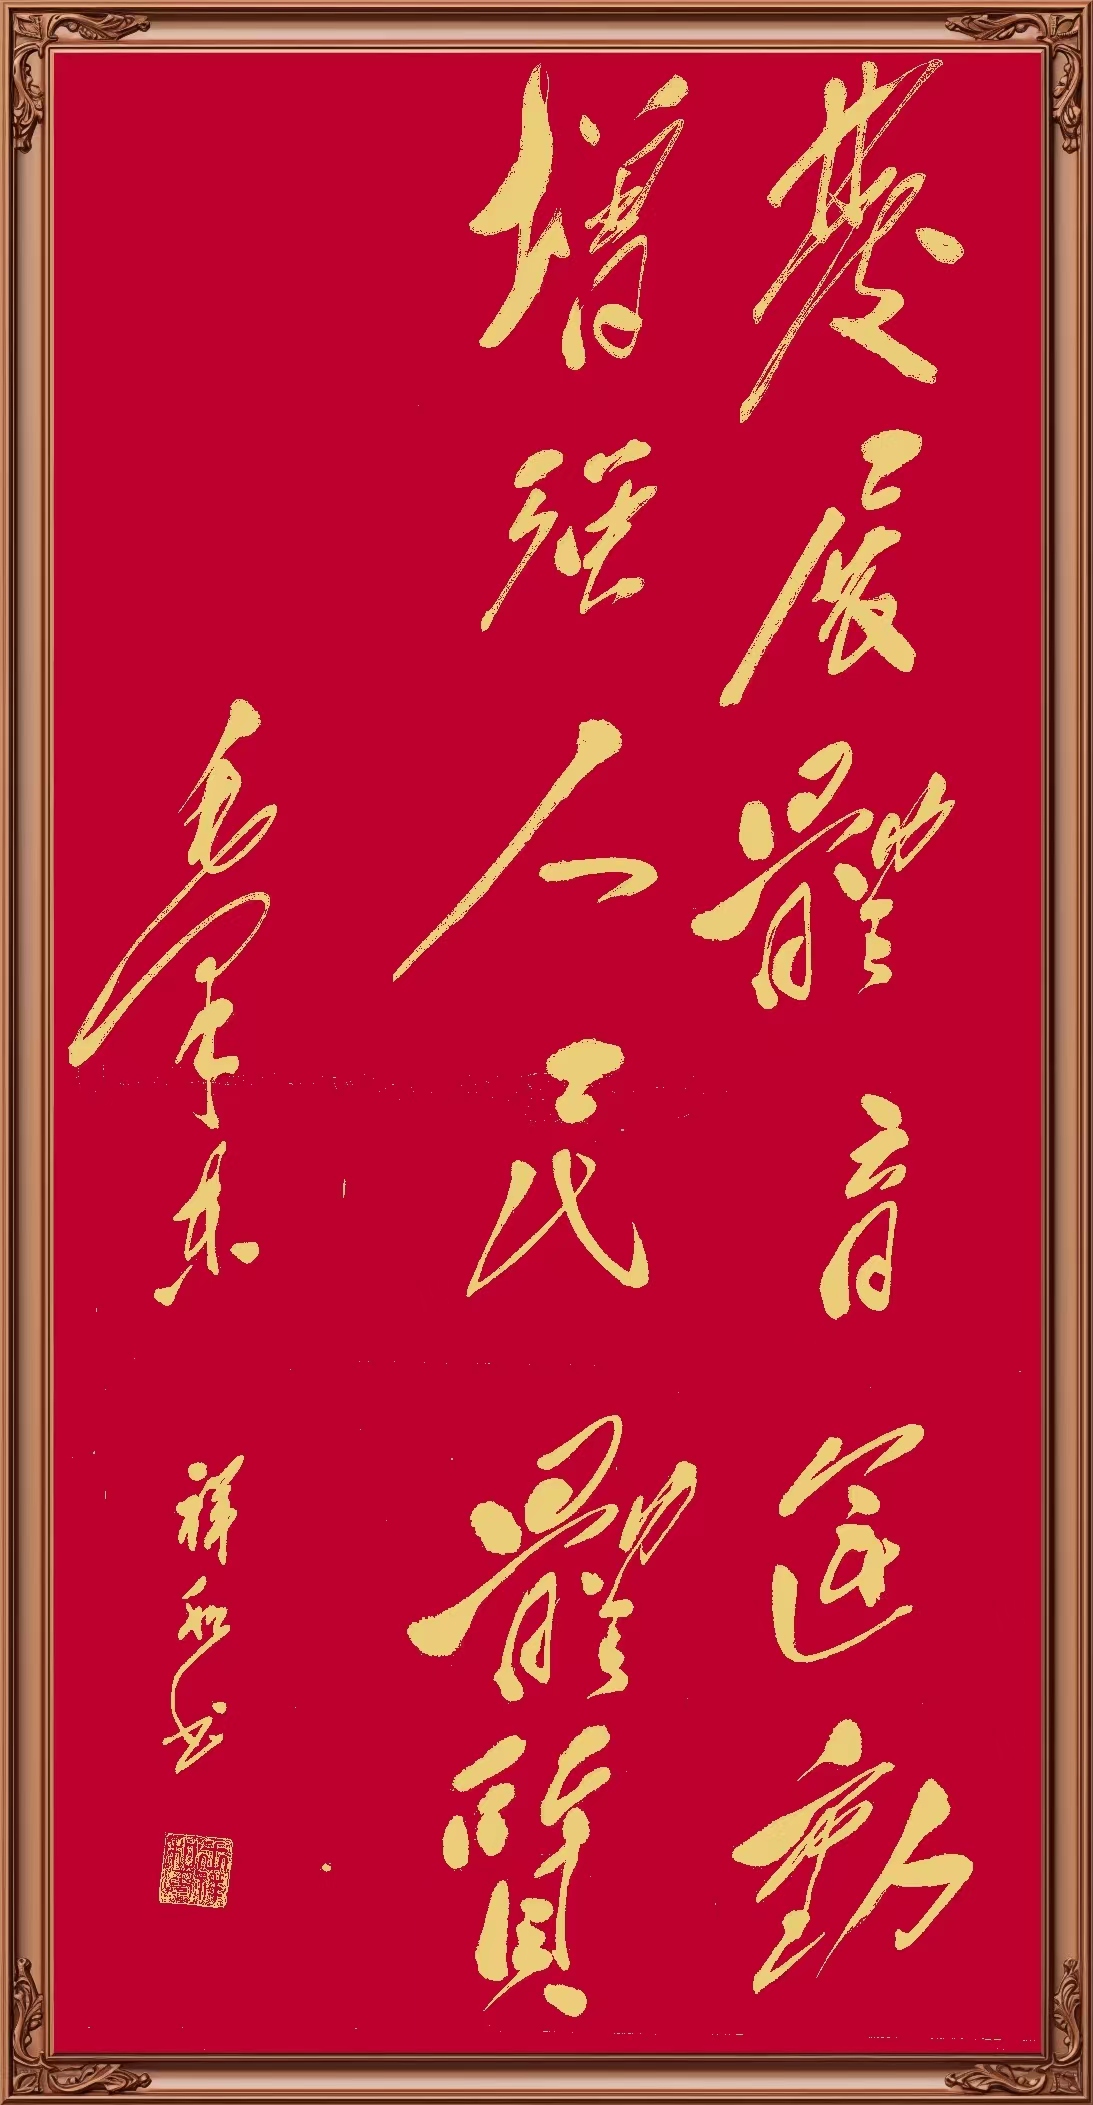 發展體育運動
增強人民體質
毛澤東
祥和书